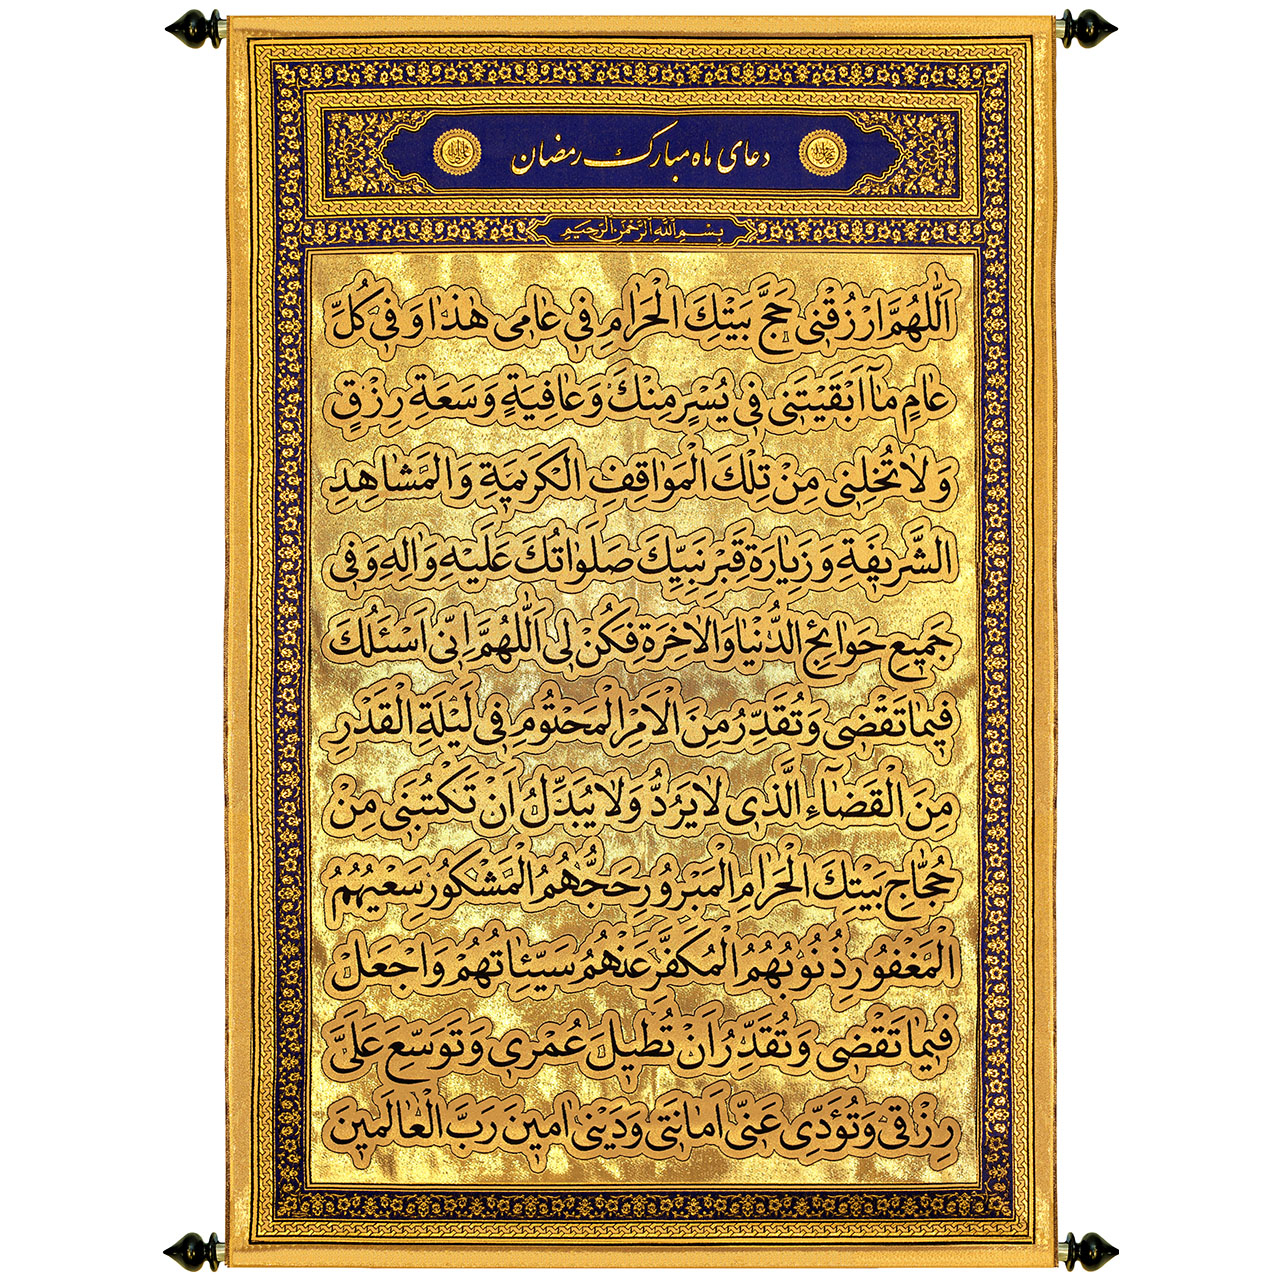 دعای ماه مبارک رمضان
بِسْمِ اللهِ الرَّحْمٰنِ الرَّحِیمِ
اَللّٰهُمَّ ارْزُقْنی حَجَّ بَیْتِكَ الْحَرٰامِ فی عٰامی هٰذٰا وَ فی كُلِّ
عٰامٍ مٰآ اَبْقَیْتَنی فی یُسْرٍ مِنْكَ وَ عٰافِیَةٍ وَ سَعَةِ رِزْقٍ
وَ لٰا تُخْلِنی مِنْ تِلْكَ الْمَوٰاقِفِ الْكَرِیمَةِ وَ الْمَشٰاهِدِ
الشَّرِیفَةِ وَ زِیٰارَةِ قَبْرِ نَبِیِّكَ صَلَوٰاتُكَ عَلَیْهِ وَ اٰلِهِ وَ فی
جَمیعِ حَوٰائِجِ الدُّنْیٰا وَ الْاٰخِرَةِ فَكُنْ لی اَللّٰهُمَّ اِنّی اَسْئَلُكَ
فیمٰا تَقْضی وَ تُقَدِّرُ مِنَ الْاَمْرِ الْمَحْتُومِ فی لَیْلَةِ الْقَدْرِ
مِنَ الْقَضٰآءِ الَّذی لٰا یُرَدُّ وَ لٰا یُبَدَّلُ اَنْ تَكْتُبَنی مِنْ
حُجّٰاجِ بَیْتِكَ الْحَرٰامِ الْمَبْرُورِ حَجُّهُمُ الْمَشْكُورِ سَعْیُهُمُ
الْمَغْفُورِ ذُنُوبُهُمُ الْمُكَفَّرِ عَنْهُمْ سَیِّئٰاتُهُمْ وَ اجْعَلْ
فیمٰا تَقْضی وَ تُقَدِّرُ اَنْ تُطیلَ عُمْری وَ تُوَسِّعَ عَلَیَّ
رِزْقی وَ تُؤَدِّی عَنّی اَمٰانَتی وَ دَیْنی اٰمینَ رَبَّ الْعٰالَمینَ